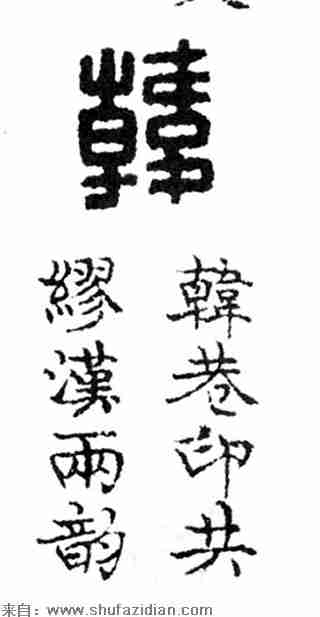 韓
韓巷印共
繆漢兩韵
来自：www.shufazidian.com